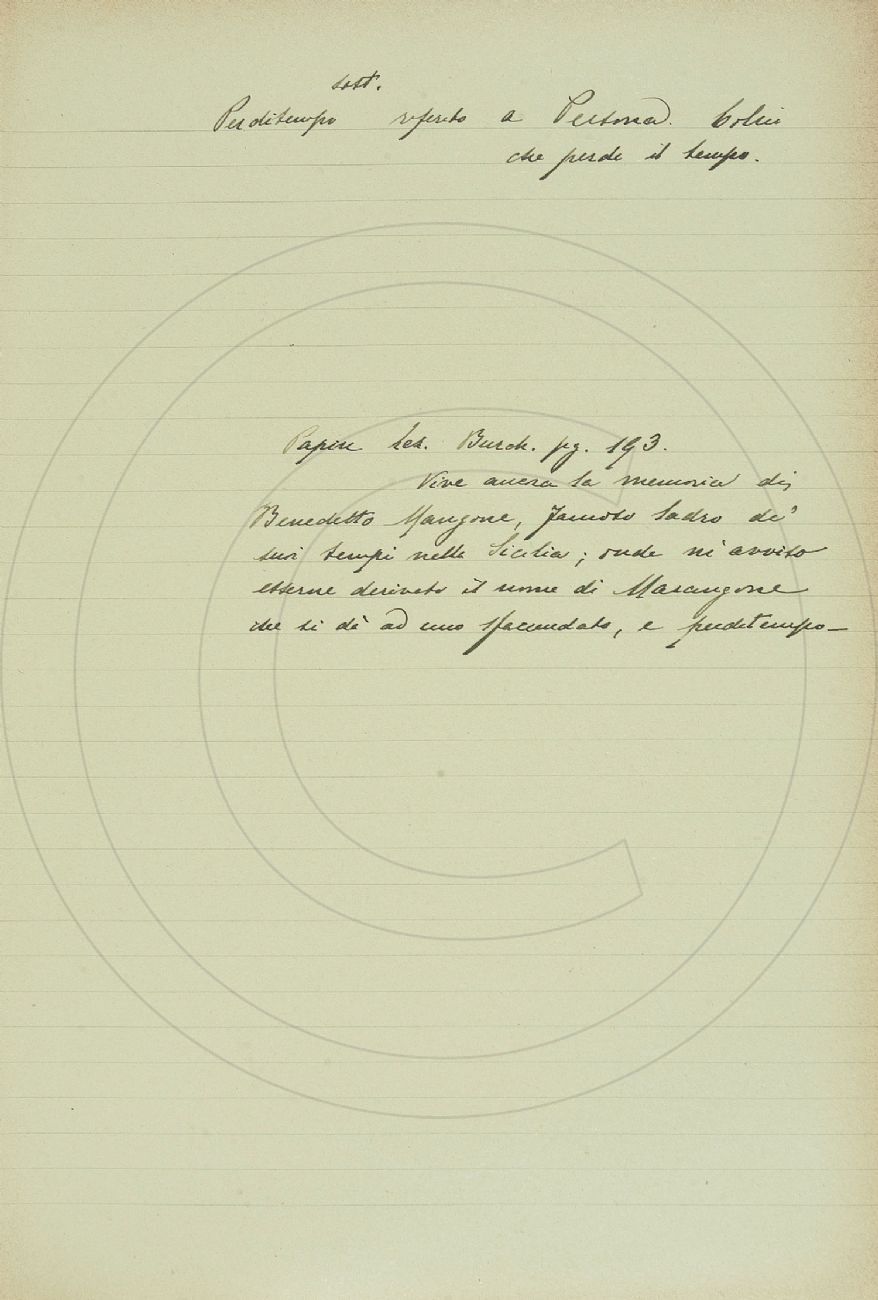 sost.
Perditempo riferito a Persona. Colui
che perde il tempo.
Papin Lez. Burch. pg. 193.
Vive ancora la memoria di
Benedetto Mangone, famoso ladro de'
suoi tempi nella Sicilia; onde m'avviso
esserne derivato il nome di Marangone
che si dà ad uno sfacendato, e perditempo—